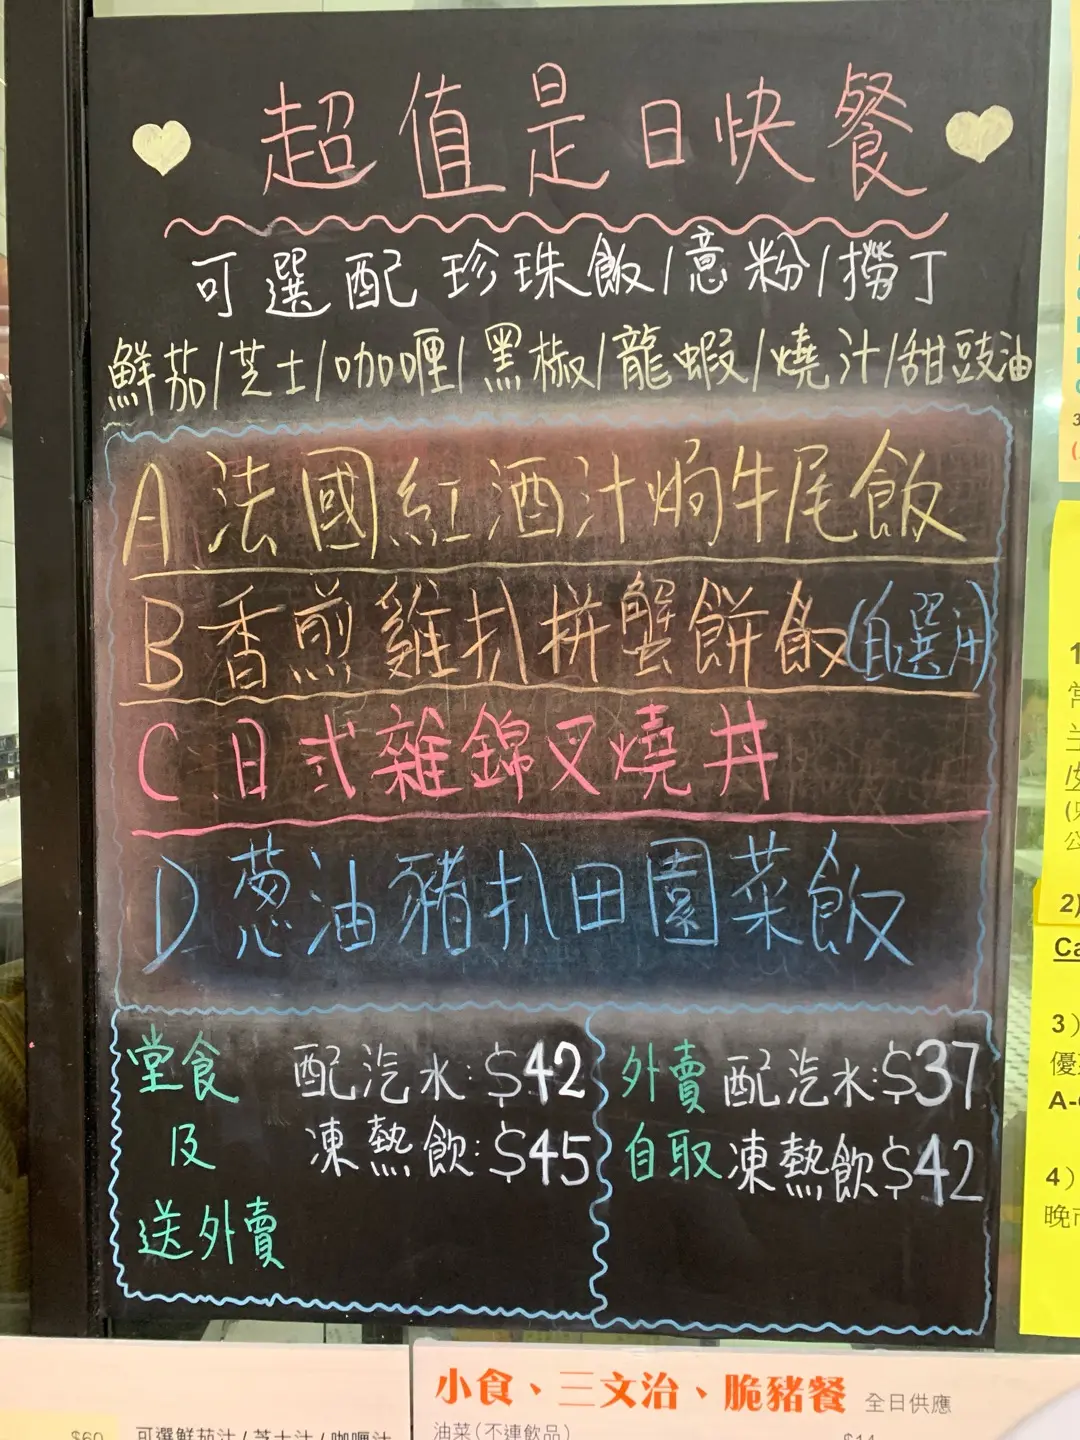 超值是日快餐
可選配 珍珠飯/意粉/撈丁
鮮茄/芝士/咖喱/黑椒/龍蝦/燒汁/甜豉油
A 法國紅酒汁焗牛尾飯
B 香煎雞扒拼蟹餅飯(自選汁)
C 日式雜錦叉燒丼
D 葱油豬扒田園菜飯
堂食 配汽水:$42
及 凍熱飲:$45
送外賣
外賣 配汽水:$37
自取 凍熱飲$42
小食、三文治、脆豬餐 全日供應
油菜(不連飲品)
$14
$60
可選鮮茄汁/芝士汁/咖喱汁
1
2)
Ca
3)
優
A-
4)
晚市